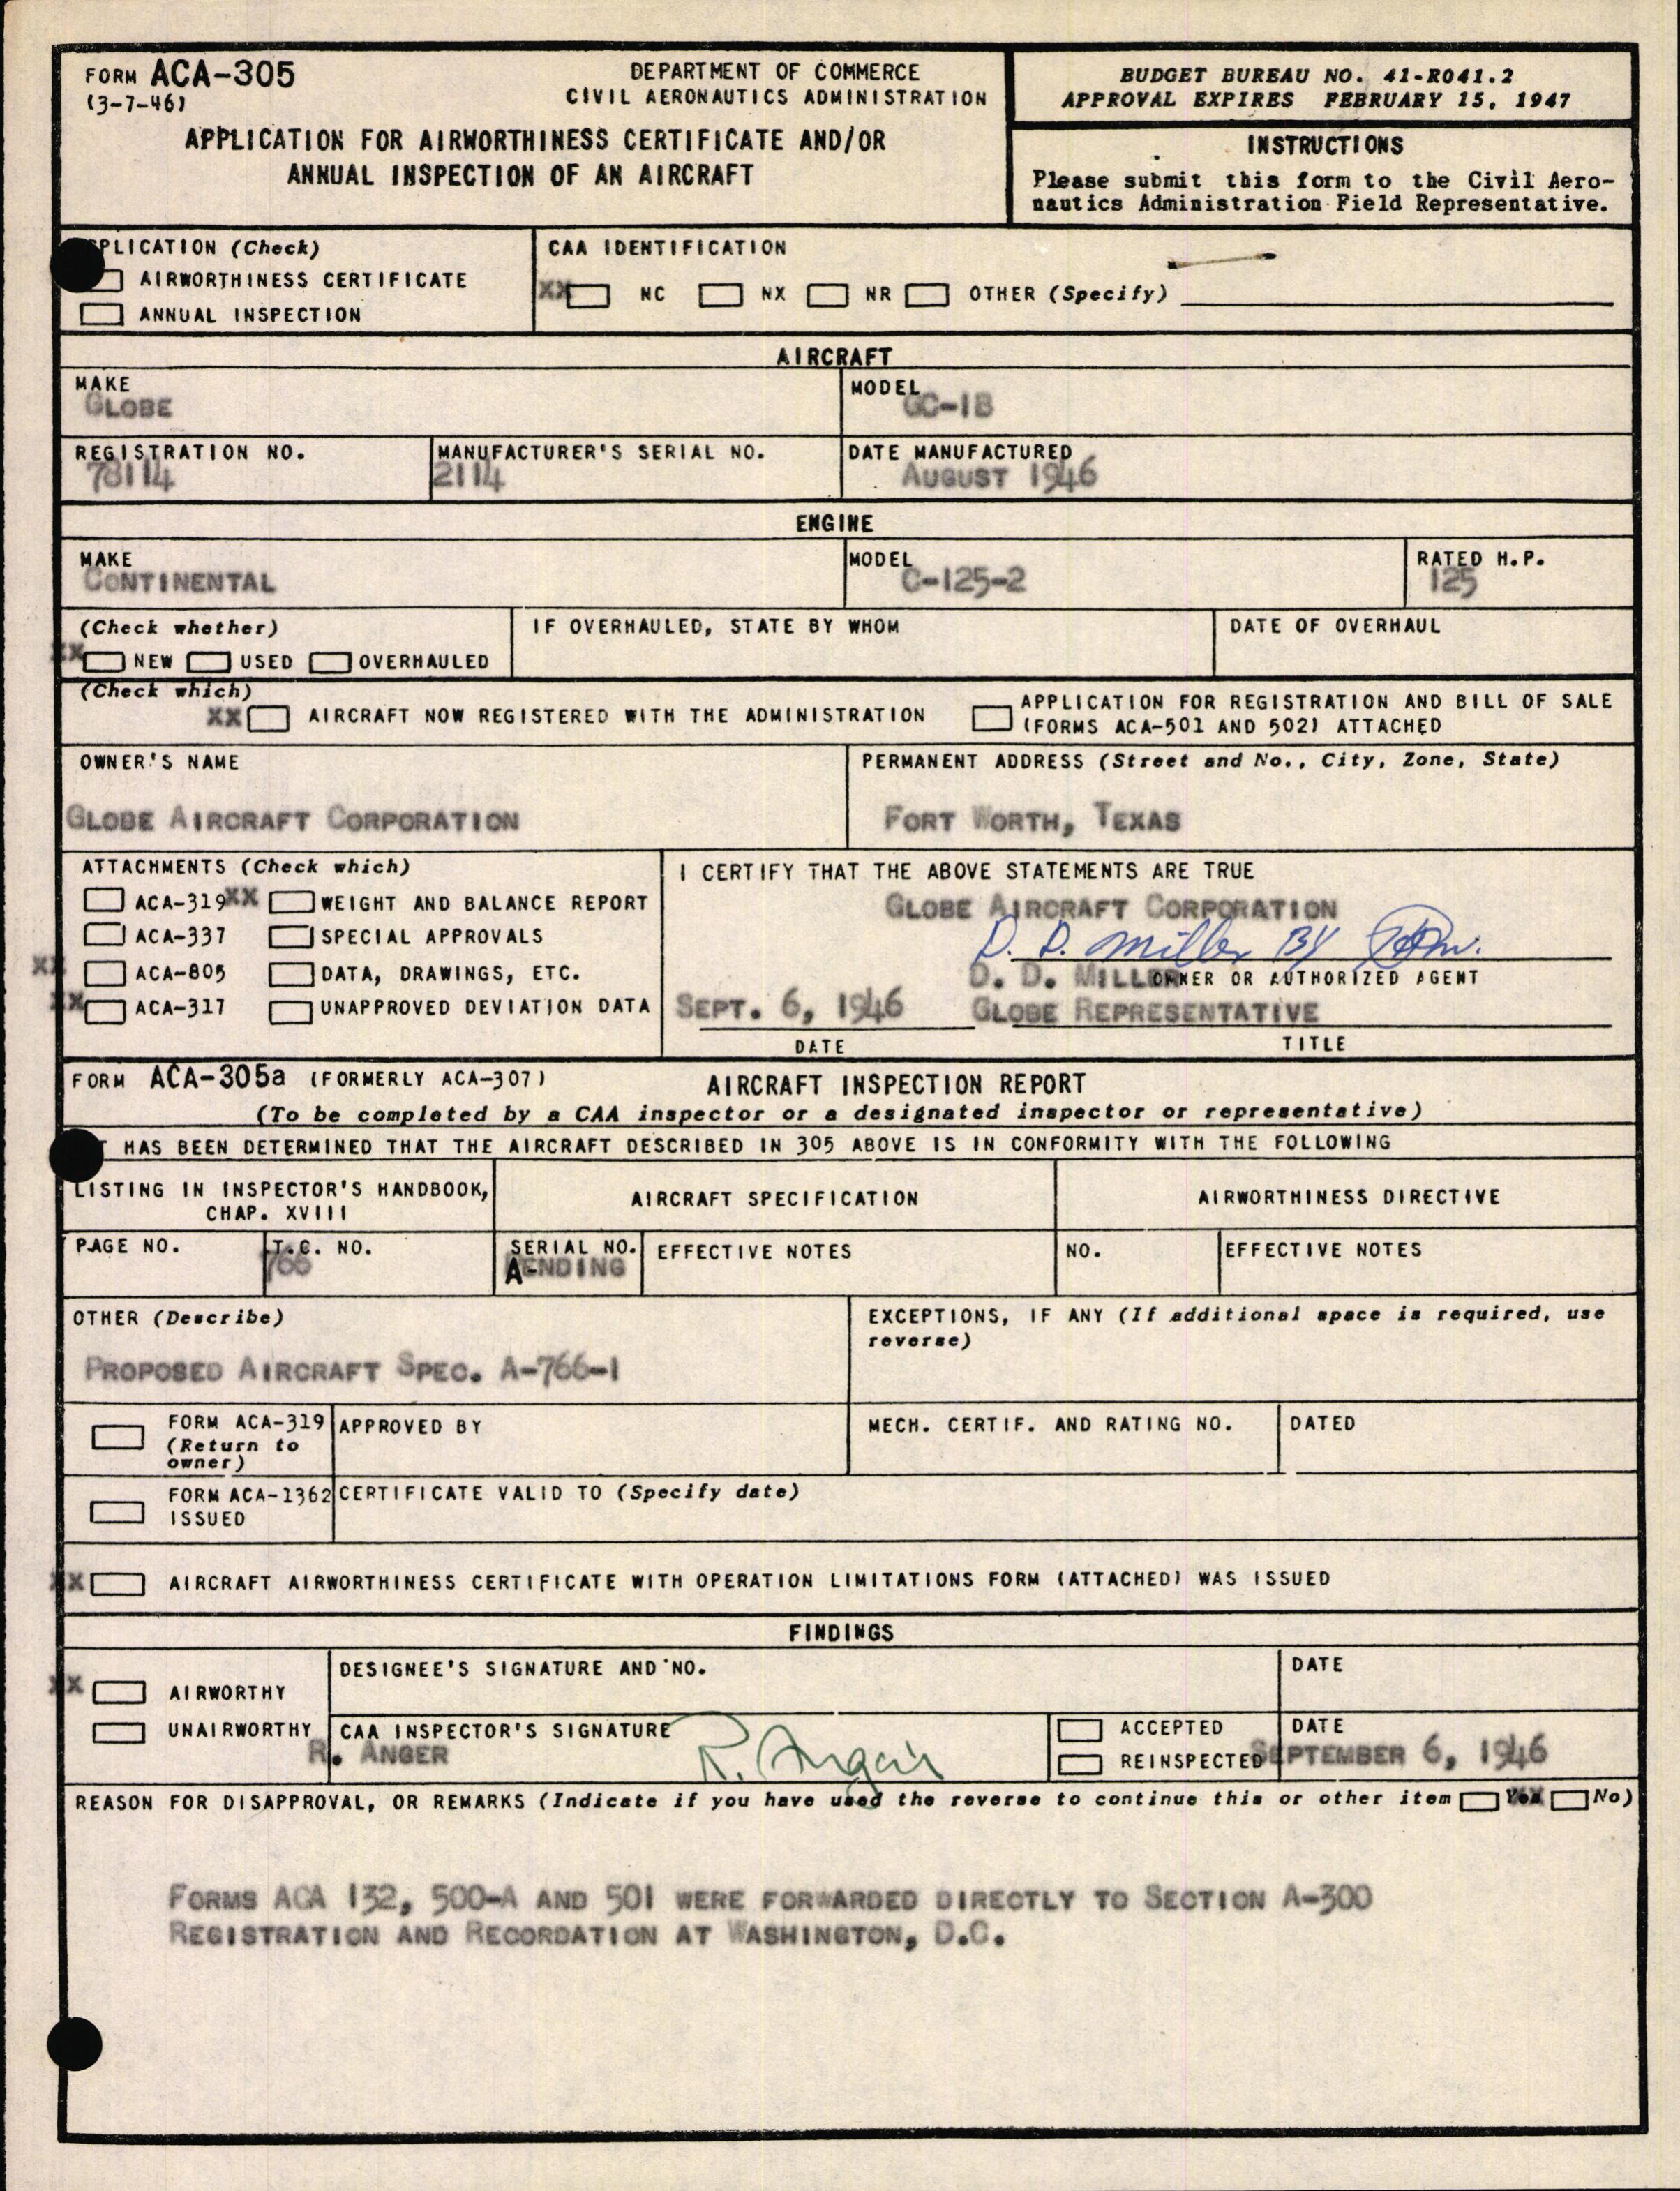 FORM ACA-305
(3-7-46)
DEPARTMENT OF COMMERCE
CIVIL AERONAUTICS ADMINISTRATION
APPLICATION FOR AIRWORTHINESS CERTIFICATE AND/OR
ANNUAL INSPECTION OF AN AIRCRAFT
BUDGET BUREAU NO. 41-R041.2
APPROVAL EXPIRES FEBRUARY 15, 1947
INSTRUCTIONS
Please submit this form to the Civil Aero-
nautics Administration Field Representative.
PLICATION (Check)
AIRWORTHINESS CERTIFICATE
ANNUAL INSPECTION
CAA IDENTIFICATION
XX NC NX NR OTHER (Specify)
AIRCRAFT
MAKE
GLOBE
MODEL
GC-1B
REGISTRATION NO.
78114
MANUFACTURER'S SERIAL NO.
2114
DATE MANUFACTURED
AUGUST 1946
ENGINE
MAKE
CONTINENTAL
MODEL
C-125-2
RATED H.P.
125
(Check whether)
XX NEW USED OVERHAULED
IF OVERHAULED, STATE BY WHOM
DATE OF OVERHAUL
(Check which)
XX AIRCRAFT NOW REGISTERED WITH THE ADMINISTRATION
APPLICATION FOR REGISTRATION AND BILL OF SALE
(FORMS ACA-501 AND 502) ATTACHED
OWNER'S NAME
GLOBE AIRCRAFT CORPORATION
PERMANENT ADDRESS (Street and No., City, Zone, State)
FORT WORTH, TEXAS
ATTACHMENTS (Check which)
ACA-319 XX WEIGHT AND BALANCE REPORT
ACA-337 SPECIAL APPROVALS
XX ACA-805 DATA, DRAWINGS, ETC.
XX ACA-317 UNAPPROVED DEVIATION DATA
I CERTIFY THAT THE ABOVE STATEMENTS ARE TRUE
GLOBE AIRCRAFT CORPORATION
D. D. Miller BY
D. D. MILLER OWNER OR AUTHORIZED AGENT
SEPT. 6, 1946 GLOBE REPRESENTATIVE
DATE TITLE
FORM ACA-305a (FORMERLY ACA-307)
AIRCRAFT INSPECTION REPORT
(To be completed by a CAA inspector or a designated inspector or representative)
T HAS BEEN DETERMINED THAT THE AIRCRAFT DESCRIBED IN 305 ABOVE IS IN CONFORMITY WITH THE FOLLOWING
LISTING IN INSPECTOR'S HANDBOOK,
CHAP. XVIII
AIRCRAFT SPECIFICATION
AIRWORTHINESS DIRECTIVE
PAGE NO.
T.C. NO.
766
SERIAL NO.
A-PENDING
EFFECTIVE NOTES
NO.
EFFECTIVE NOTES
OTHER (Describe)
PROPOSED AIRCRAFT SPEC. A-766-1
EXCEPTIONS, IF ANY (If additional space is required, use
reverse)
FORM ACA-319
(Return to
owner)
APPROVED BY
MECH. CERTIF. AND RATING NO.
DATED
FORM ACA-1362
ISSUED
CERTIFICATE VALID TO (Specify date)
XX AIRCRAFT AIRWORTHINESS CERTIFICATE WITH OPERATION LIMITATIONS FORM (ATTACHED) WAS ISSUED
FINDINGS
XX AIRWORTHY
UNAIRWORTHY
DESIGNEE'S SIGNATURE AND NO.
DATE
CAA INSPECTOR'S SIGNATURE
R. ANGER R. Anger
ACCEPTED
REINSPECTED
DATE
SEPTEMBER 6, 1946
REASON FOR DISAPPROVAL, OR REMARKS (Indicate if you have used the reverse to continue this or other item Yes No)
FORMS ACA 132, 500-A AND 501 WERE FORWARDED DIRECTLY TO SECTION A-300
REGISTRATION AND RECORDATION AT WASHINGTON, D.C.